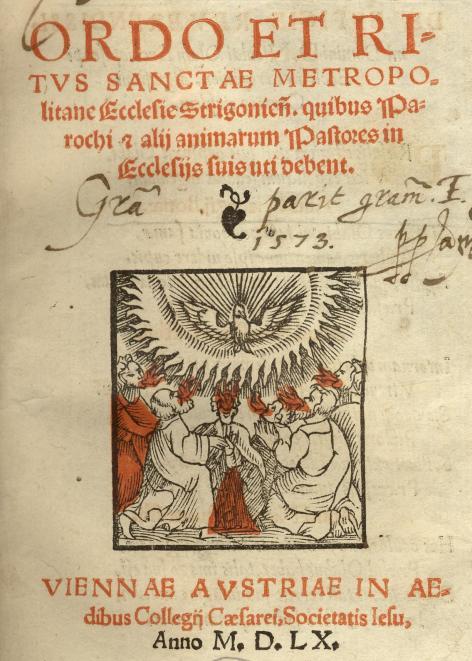 ORDO ET RI-
TVS SANCTAE METROPO-
litane Ecclesie Strigonieñ. quibus Pa-
rochi ⁊ alij animarum Pastores in
Ecclesijs suis uti debent.
Grã parit gram̃. E.
1573.
VIENNAE AVSTRIAE IN AE-
dibus Collegij Cæsarei, Societatis Iesu,
Anno M. D. LX.